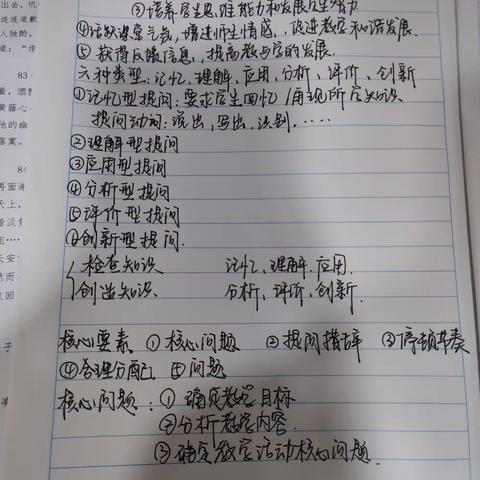 ③培养学生思维能力和发展学生智力
④活跃课堂气氛,增进师生情感,促进教学和谐发展.
⑤获得反馈信息,提高教与学的发展.
六种类型:记忆、理解、应用、分析、评价、创新
①记忆型提问:要求学生回忆/再现所学知识
提问动词:说出,写出,识别,……
②理解型提问
③应用型提问
④分析型提问
⑤评价型提问
⑥创新型提问.
检查知识 记忆、理解、应用.
创造知识 分析、评价、创新.
核心要素 ①核心问题 ②提问措辞 ③停顿节奏
④合理分配 ⑤问题
核心问题:①确定教学目标
②分析教学内容.
③确定教学活动核心问题.
83
84